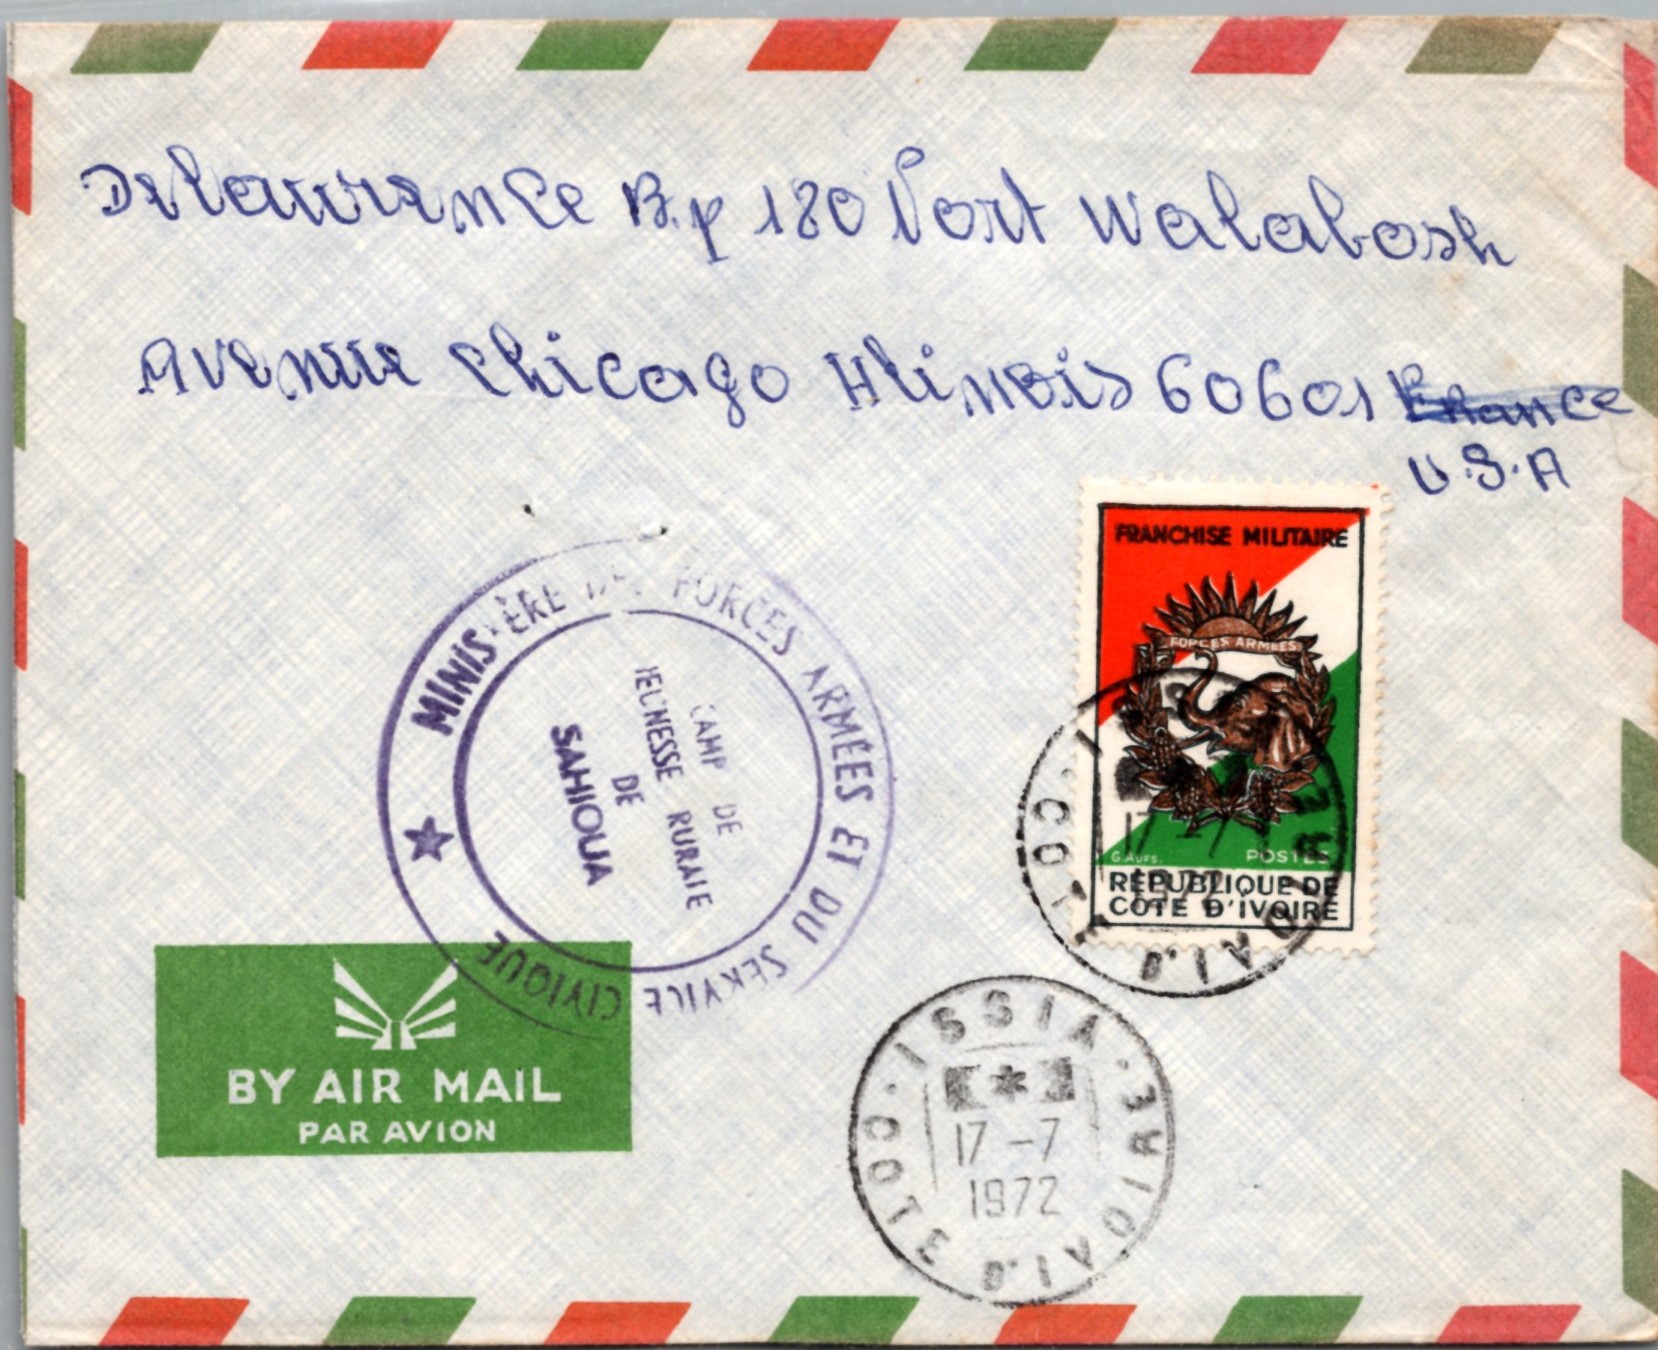 Delaurence B.p 180 Nort Walabosh
Avenue Chicago Illinois 60601 France
U.S.A
FRANCHISE MILITAIRE
FORCES ARMEES
G.AUFS. POSTES
RÉPUBLIQUE DE
CÔTE D'IVOIRE
MINISTÈRE DES FORCES ARMÉES ET DU SERVICE CIVIQUE
CAMP DE
JEUNESSE RURALE
DE
SAHIOUA
BY AIR MAIL
PAR AVION
ISSIA
COTE D'IVOIRE
17 -7
1972
COTE D'IVOIRE
17 -7